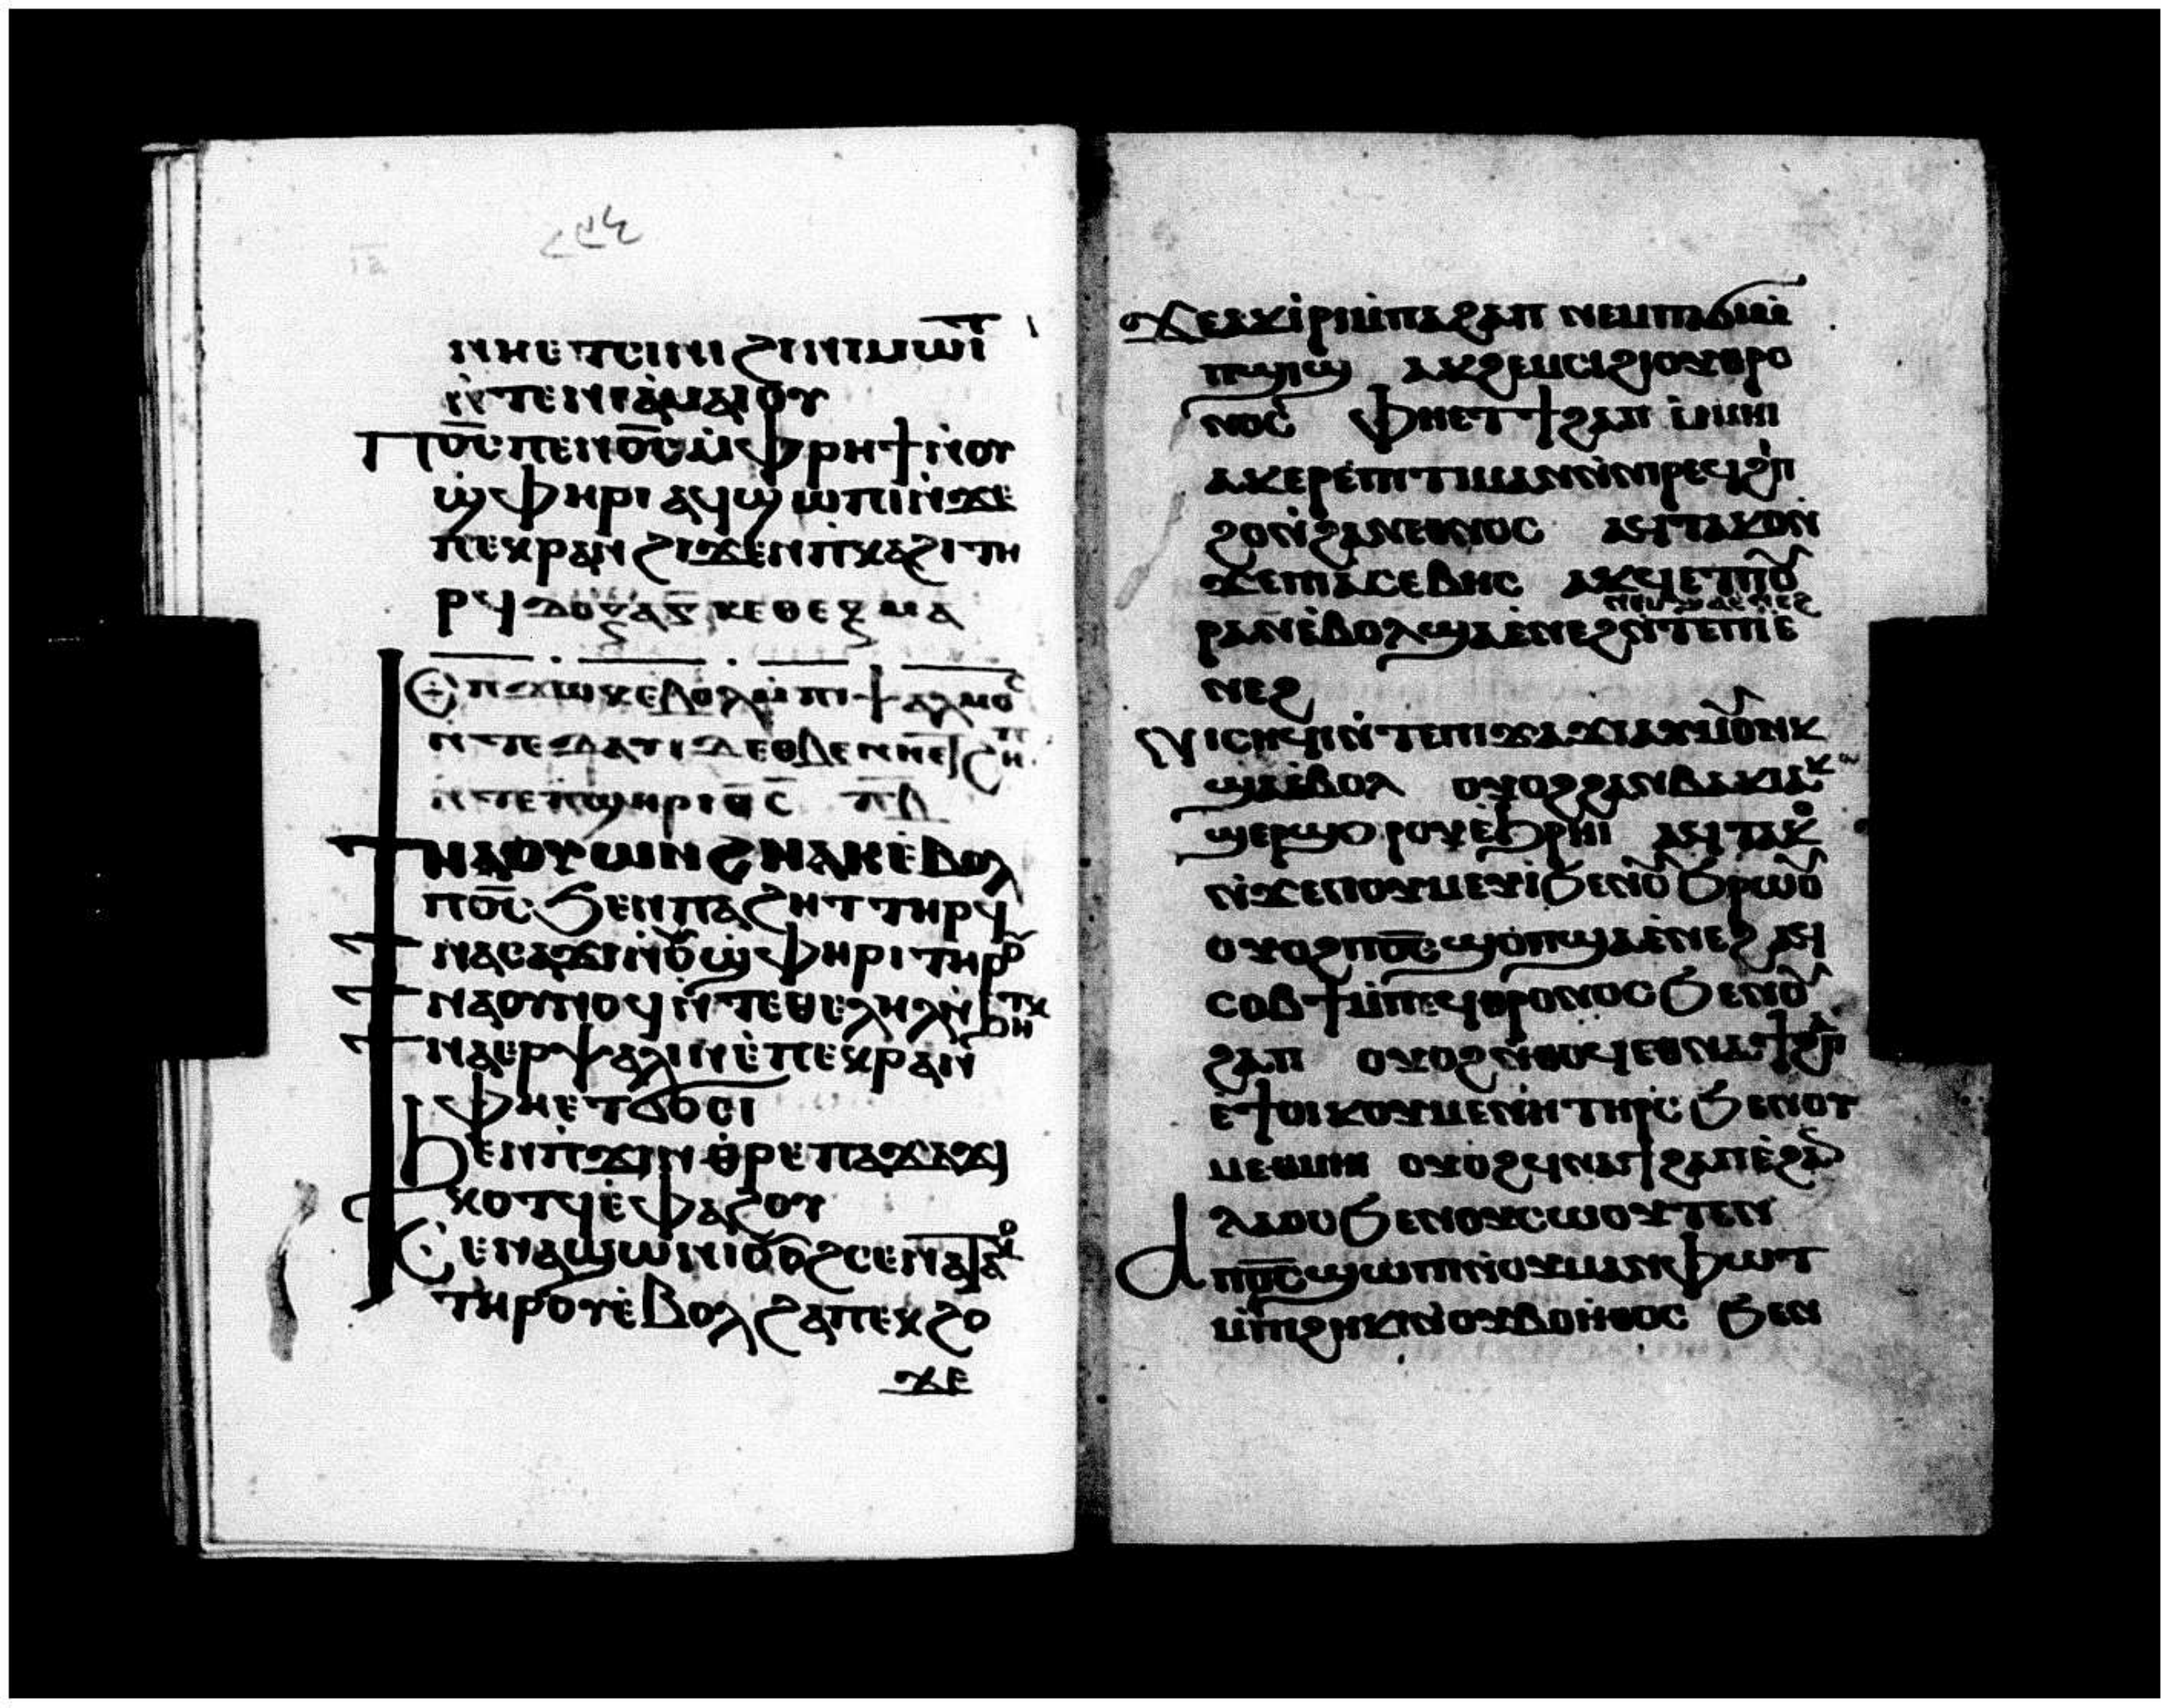 ⲛⲏⲉⲧⲥⲓⲛⲓϩⲓⲛⲓⲙⲱⲓⲧ
ⲛ̀ⲧⲉⲛⲓⲁ̀ⲙⲁⲓⲟⲩ
Ⲡⲟ̅ⲥ̅ⲡⲉⲛⲟ̅ⲥ̅ⲙ̀ⲫⲣⲏϯⲛ̀ⲟⲩ
ϣ̀ⲫⲏⲣⲓ ⲁϥϣⲱⲡⲓⲛ̀ϫⲉ
ⲡⲉⲕⲣⲁⲛϩⲓϫⲉⲛⲡ̀ⲕⲁϩⲓⲧⲏ
ⲣϥ ⲇⲟⲝⲁⲥ ⲕⲉ ⲑⲉⲟⲥ ⲙⲁ
Ⲉⲡϫⲱⲕⲉ̀ⲃⲟⲗ ⲡⲓⲯⲁⲗⲙⲟⲥ
ⲛ̀ⲧⲉⲇⲁⲩⲓⲇ ⲉⲑⲃⲉ
ⲛ̀ⲧⲉⲡϣⲏⲣⲓ
ϯⲛⲁⲟⲩⲱⲛϩⲛⲁⲕⲉ̀ⲃⲟⲗ
ⲡⲟ̅ⲥ̅ϧⲉⲛⲡⲁϩⲏⲧⲧⲏⲣϥ
ϯⲛⲁⲥⲁϫⲓⲛ̀ⲟⲩϣ̀ⲫⲏⲣⲓⲧⲏⲣⲟⲩ
ϯⲛⲁⲟⲩⲛⲟϥⲛ̀ⲧⲉⲑⲉⲗⲏⲗⲛ̀ϧⲏⲧⲕ
ϯⲛⲁⲉⲣⲯⲁⲗⲓⲛⲉ̀ⲡⲉⲕⲣⲁⲛ
ⲫⲏⲉⲧϭⲟⲥⲓ
ϧⲉⲛⲡ̀ϫⲓⲛⲑ̀ⲣⲉⲡⲁϫⲁϫⲓ
ⲕⲟⲧϥⲉ̀ⲫⲁϩⲟⲩ
Ⲥⲉⲛⲁϣⲱⲛⲓⲟⲩⲟϩⲥⲉⲛⲁⲧⲁⲕⲟ
ⲧⲏⲣⲟⲩⲉ̀ⲃⲟⲗϩⲁⲡⲉⲕϩⲟ
ϫⲉ
Ϫⲉⲁⲕⲓⲣⲓⲙ̀ⲡⲁϩⲁⲡ ⲛⲉⲙⲡⲁϭⲓⲙ̀
ⲡϣⲓϣ ⲁⲕϩⲉⲙⲥⲓϩⲓⲟⲩⲑⲣⲟ
ⲛⲟⲥ ⲫⲏⲉⲧϯϩⲁⲡ ⲙ̀ⲙⲏⲓ
ⲁⲕⲉⲣⲉ̀ⲡⲓⲧⲓⲙⲁⲛⲛ̀ⲛⲓⲣⲉϥϩⲓ
ϩⲟⲛ̀ϩⲁⲛⲉⲑⲛⲟⲥ ⲁϥⲧⲁⲕⲟⲛ
ϫⲉⲡⲓⲁⲥⲉⲃⲏⲥ ⲁⲕϥⲉⲧⲡⲟⲩ
ⲛⲉⲙϣⲁⲉⲛⲉϩ
ⲣⲁⲛⲉ̀ⲃⲟⲗϣⲁⲉ̀ⲛⲉϩⲛ̀ⲧⲉⲡⲓⲉ
ⲛⲉϩ
Ⲛⲓⲥⲏϥⲓⲛ̀ⲧⲉⲡⲓϫⲁϫⲓⲁⲩⲙⲟⲩⲛⲕ
ϣⲁⲉ̀ⲃⲟⲗ ⲟⲩⲟϩϩⲁⲛⲃⲁⲕⲓⲁⲕ
ϣⲉⲣϣⲟⲣⲟⲩⲉ̀ϧⲣⲏⲓ ⲁϥⲧⲁⲕⲟ
ⲛ̀ϫⲉⲡⲟⲩⲙⲉⲩⲓϧⲉⲛⲟⲩϧⲣⲱⲟⲩ
ⲟⲩⲟϩⲡⲟ̅ⲥ̅ϣⲟⲡϣⲁⲉ̀ⲛⲉϩ ⲁϥ
ⲥⲟⲃϯⲙ̀ⲡⲉϥⲑⲣⲟⲛⲟⲥϧⲉⲛⲟⲩ
ϩⲁⲡ ⲟⲩⲟϩⲛ̀ⲑⲟϥⲉⲑⲛⲁϯϩⲁⲡ
ⲉ̀ϯⲟⲓⲕⲟⲩⲙⲉⲛⲏⲧⲏⲣⲥϧⲉⲛⲟⲩ
ⲙⲉⲑⲙⲏⲓ ⲟⲩⲟϩϥⲛⲁϯϩⲁⲡⲉ̀ϩⲁⲛ
ⲗⲁⲟⲥϧⲉⲛⲟⲩⲥⲱⲟⲩⲧⲉⲛ
Ⲁⲡⲟ̅ⲥ̅ϣⲱⲡⲓⲛ̀ⲟⲩⲙⲁⲛⲫⲱⲧ
ⲙ̀ⲡⲓϩⲏⲕⲓⲛ̀ⲟⲩⲃⲟⲏⲑⲟⲥ ϧⲉⲛ